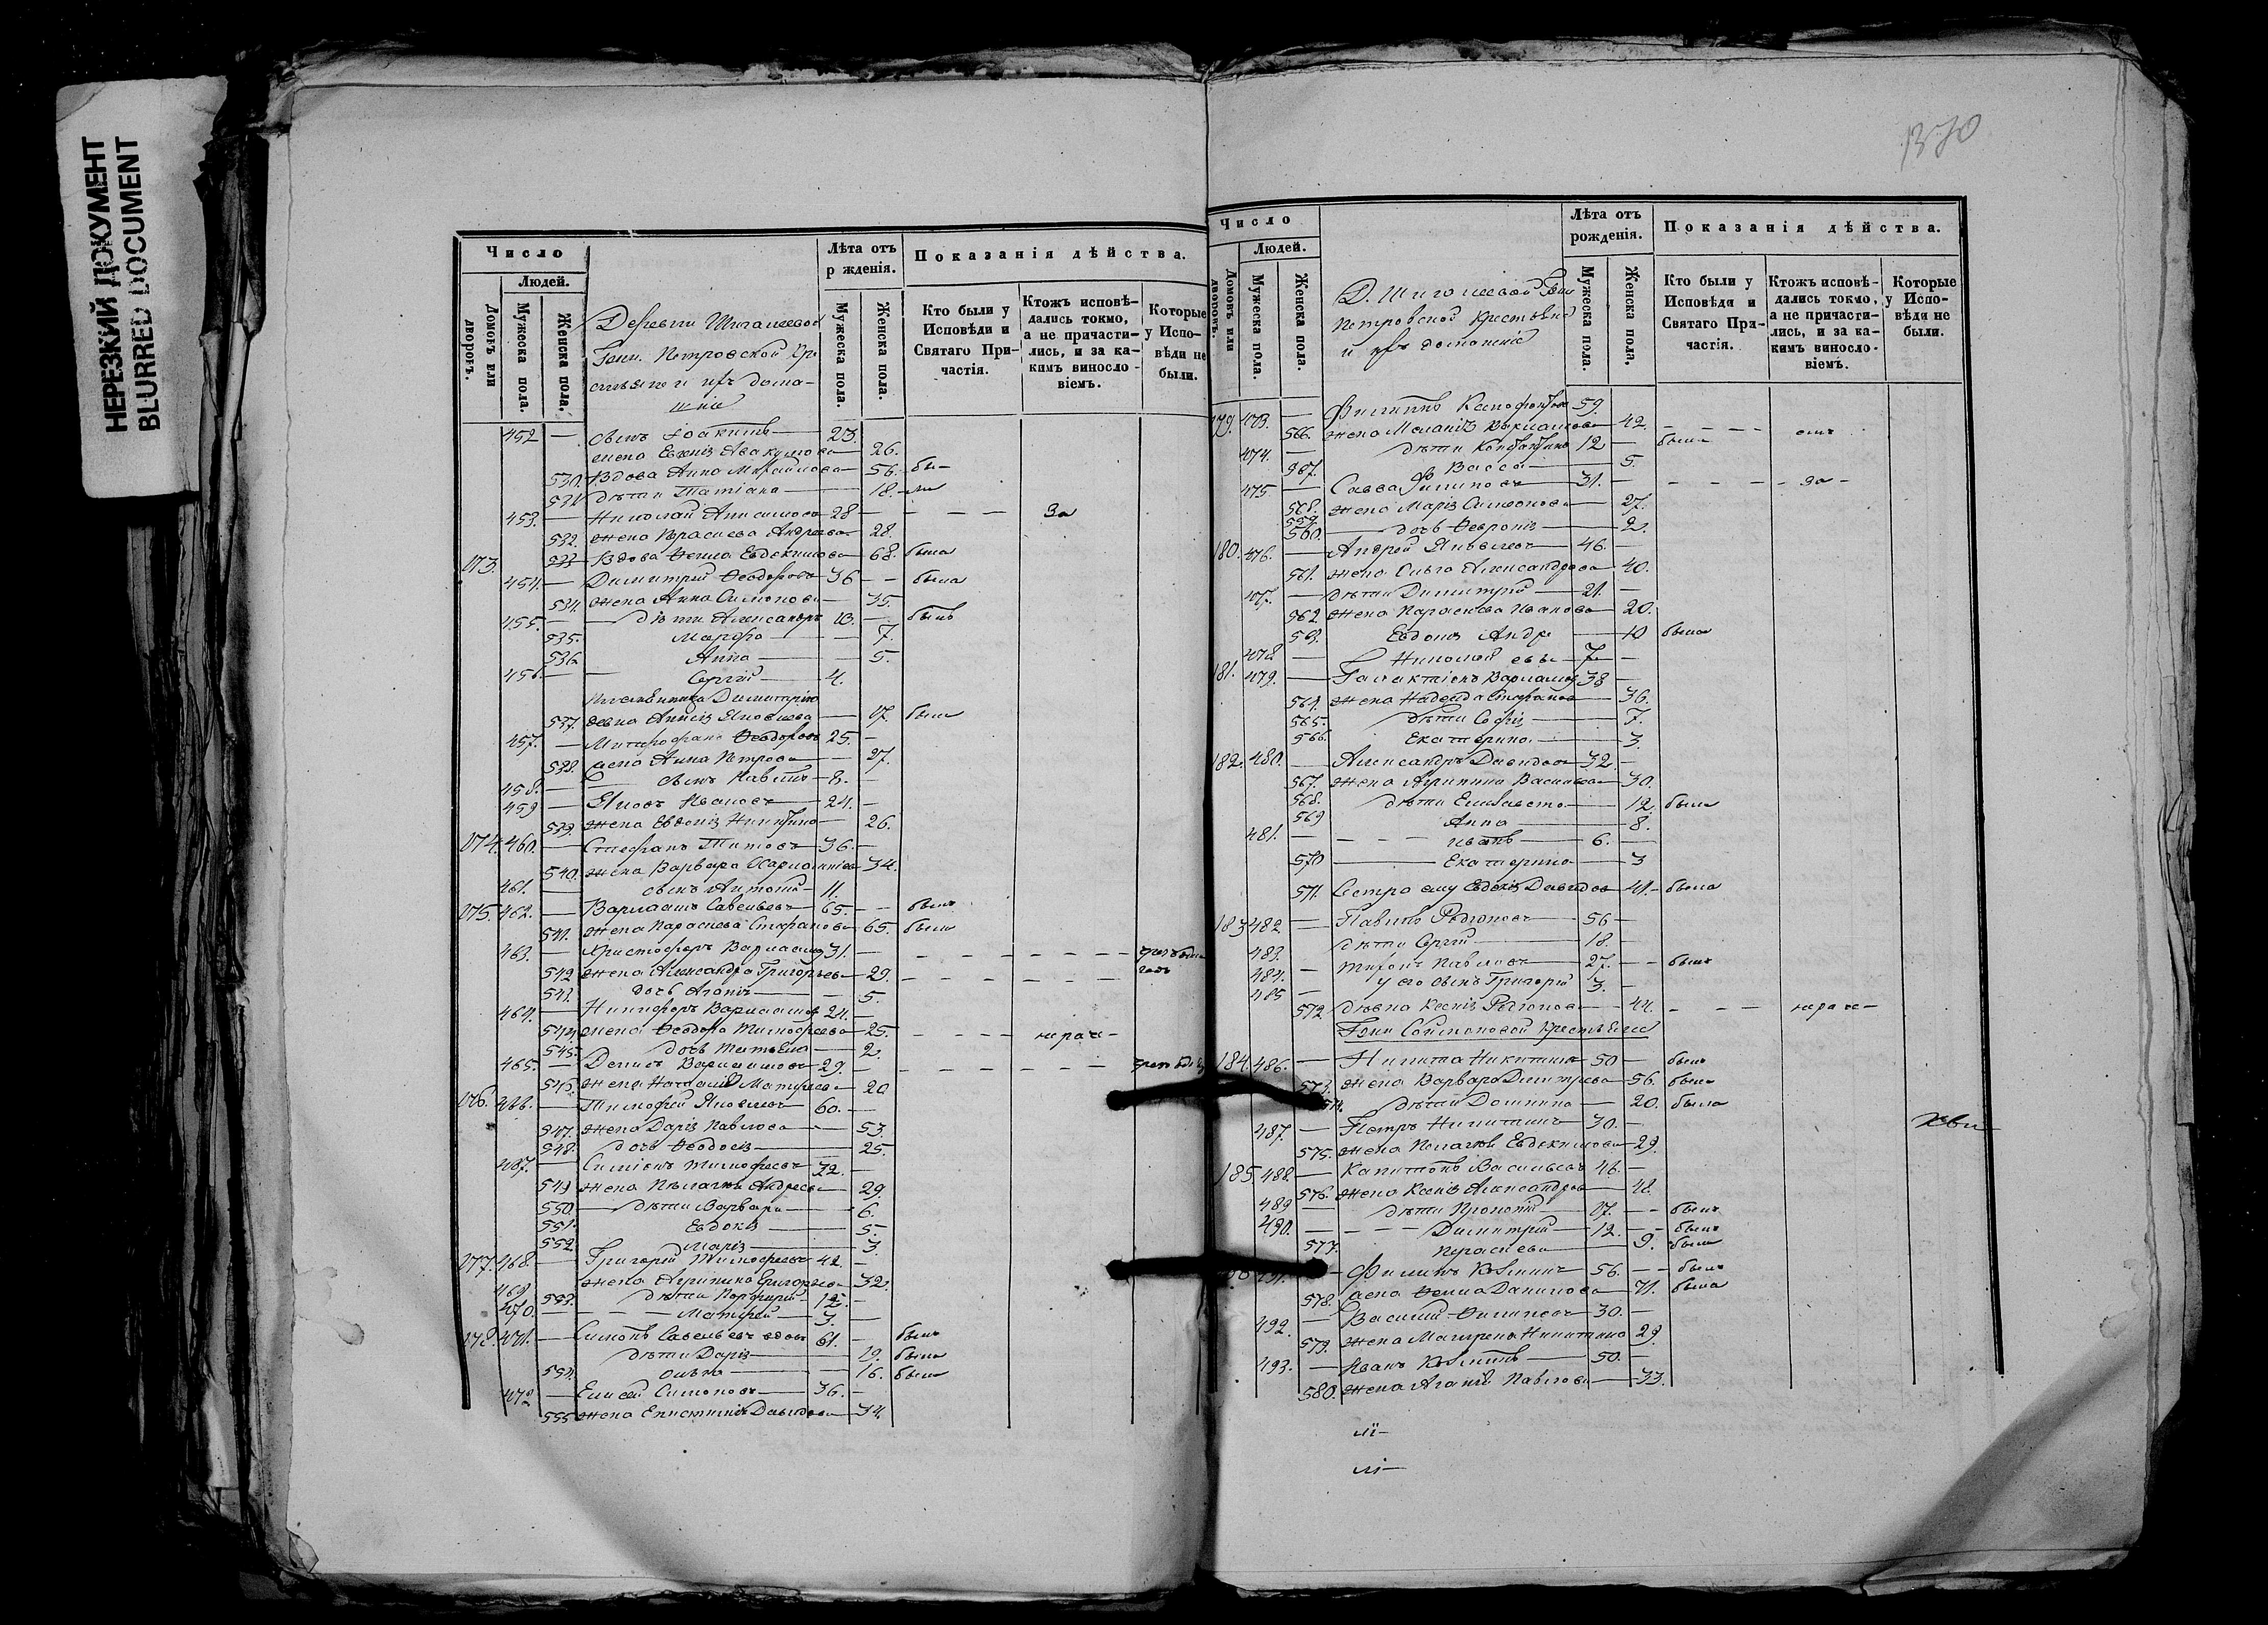 НЕРЕЗКИЙ ДОКУМЕНТ
BLURRED DOCUMENT
Число
Людей.
Домовъ или дворовъ.
Мужеска пола.
Женска пола.
Деревни Шигалеевой
Петровской Кре
стьяне и ихъ дома-
шніе
Лѣта отъ р жденія.
Мужеска пола.
Женска пола.
Показанія дѣйства.
Кто были у Исповѣди и Святаго При- частія.
Ктожъ исповѣ- дались токмо, а не причасти- лись, и за ка- кимъ винословіемъ.
Которые у Испо- вѣди не были.
452 — сынъ Іоакимъ — 23.
жена Евгенія Авакумова — 26.
530. Вдова Анна Михайлова — 56.
531 дѣти Татіана — 18.
453. — Николай Анисимовъ 28 — За
532. жена Параскева Андреева 28.
173. 533 Вдова Ѳекла Евдокимова 68. была
454. — Димитрій Ѳеодоровъ 36 — была
534. жена Анна Симонова — 35.
455. — дѣти Александръ 13. — былъ
535. Марѳа — 7.
536 Анна — 5.
456. — Сергій — 4.
Димитрію
537. Яковлева — 17. была
457. — Митрофанъ Ѳеодоровъ 25. —
538. жена Анна Петрова — 27.
458. — сынъ Павелъ 8. —
459 — Яковъ Ивановъ — 24. —
539. жена Евдокія Никитина — 26.
174. 460. — Стефанъ Титовъ — 36. —
540. жена Варвара Харлампіева 34.
461. сынъ Антоній 11.
175. 462. — Варлаамъ Савельевъ 65. — былъ
541. жена Параскева Стефанова 65. была
463. — Христофоръ Варлаамов 31. —
542 жена Александра Григорьева 29.
543. дочь Агапія — 5.
464. — Никифоръ Варлаамов 24. —
544. жена Ѳеодора Тимофеева 25.
545. дочь Татьяна — 2.
465. — Денисъ Варлаамовъ 29. —
546. жена Наталія Матвеева 20
176. 466. — Тимофей Яковлевъ 60. —
547. жена Дарія Павлова — 53.
548. дочь Ѳеодосія — 25.
467. — Симеонъ Тимофеевъ 32. —
549 жена Пелагія Андреева 29.
550. дѣти Варвара — 6.
551. Евдокія — 5.
552. Марія — 3.
177. 468. — Григорій Тимофеевъ 42. —
жена Агрипина Григорьева 32.
469 553. дѣти Порфирій 12. —
470. — Матфей — 3. —
178. 471. — Симонъ Савельевъ вдовъ 61. — былъ
дѣти Дарія — 19. была
554. Ольга — 16. была
472 — Елисей Симоновъ — 36. —
555. жена Епистимія Давидова 34.
1370
Число
Людей.
Домовъ или дворовъ.
Мужеска пола.
Женска пола.
Д. Шигалеевой
Петровской крестьяне
и ихъ домашніе
Лѣта отъ рожденія.
Мужеска пола.
Женска пола.
Показанія дѣйства.
Кто были у Исповѣди и Святаго При- частія.
Ктожъ исповѣ- дались токмо, а не причасти- лись, и за ка- кимъ виносло- віемъ.
Которые у Испо- вѣди не были.
179. 473. — Филиппъ Ксенофонтов 59.
566. жена Меланія Варлаамова 42.
474. — дѣти Константинъ 12 —
567. Васса — 5.
475 — Савва Филиповъ — 31. — за
568. жена Марія Симеонова 27.
559
560. дочь Ѳеврония — 2.
180. 476. — Андрей Яковлевъ — 46. —
561. жена Ольга Александрова 40.
477. — дѣти Димитрій — 21. —
562 жена Параскева Иванова 20.
563. Евдокія Андре — 10 была
478 — Николай — 7 —
181. 479. — Галактіонъ Варламов 38 —
564. жена Надежда Стефанова 36.
565. дѣти Софія — 7.
566. Екатерина — 3.
182. 480. — Александръ Давидовъ 32. —
567. жена Агрипина Васильева 30.
568. дѣти Елисавета — 12. была
569 Анна — 8.
481. — Иванъ — 6. —
570 Екатерина — 3
571. Сестра ему Евдокія Давидова 41 — была
183 482 — Павелъ Родіоновъ — 56 —
483. дѣти Сергій — 18. —
484. — Тихонъ Павловъ — 27. — былъ
485 — у его сынъ Григорій 3. —
572 дѣвка Ксенія Родіонова — 44.
Соймоновой крестьяне
184. 486. — Никита Никитинъ 50 — былъ
573. жена Варвара Димитрева 56. была
574. дѣти Домнина — 20. была
487. — Петръ Никитинъ 30. —
575. жена Пелагія Евдокимова 29.
185 488. — Капитонъ Васильевъ 46. —
576. жена Ксенія Александрова 48.
489 — дѣти Прокопій 17. — былъ
490. — Димитрій — 12. — былъ
577. Параскева — 9. была
Филипъ Козминъ 56. — былъ
578. жена Ѳекла Данилова 71. была
492. — Василій Филиповъ 30. —
579. жена Матрена Никитина 29.
493. — Иванъ Козминъ — 50. —
580. жена Агапія Павлова 33.